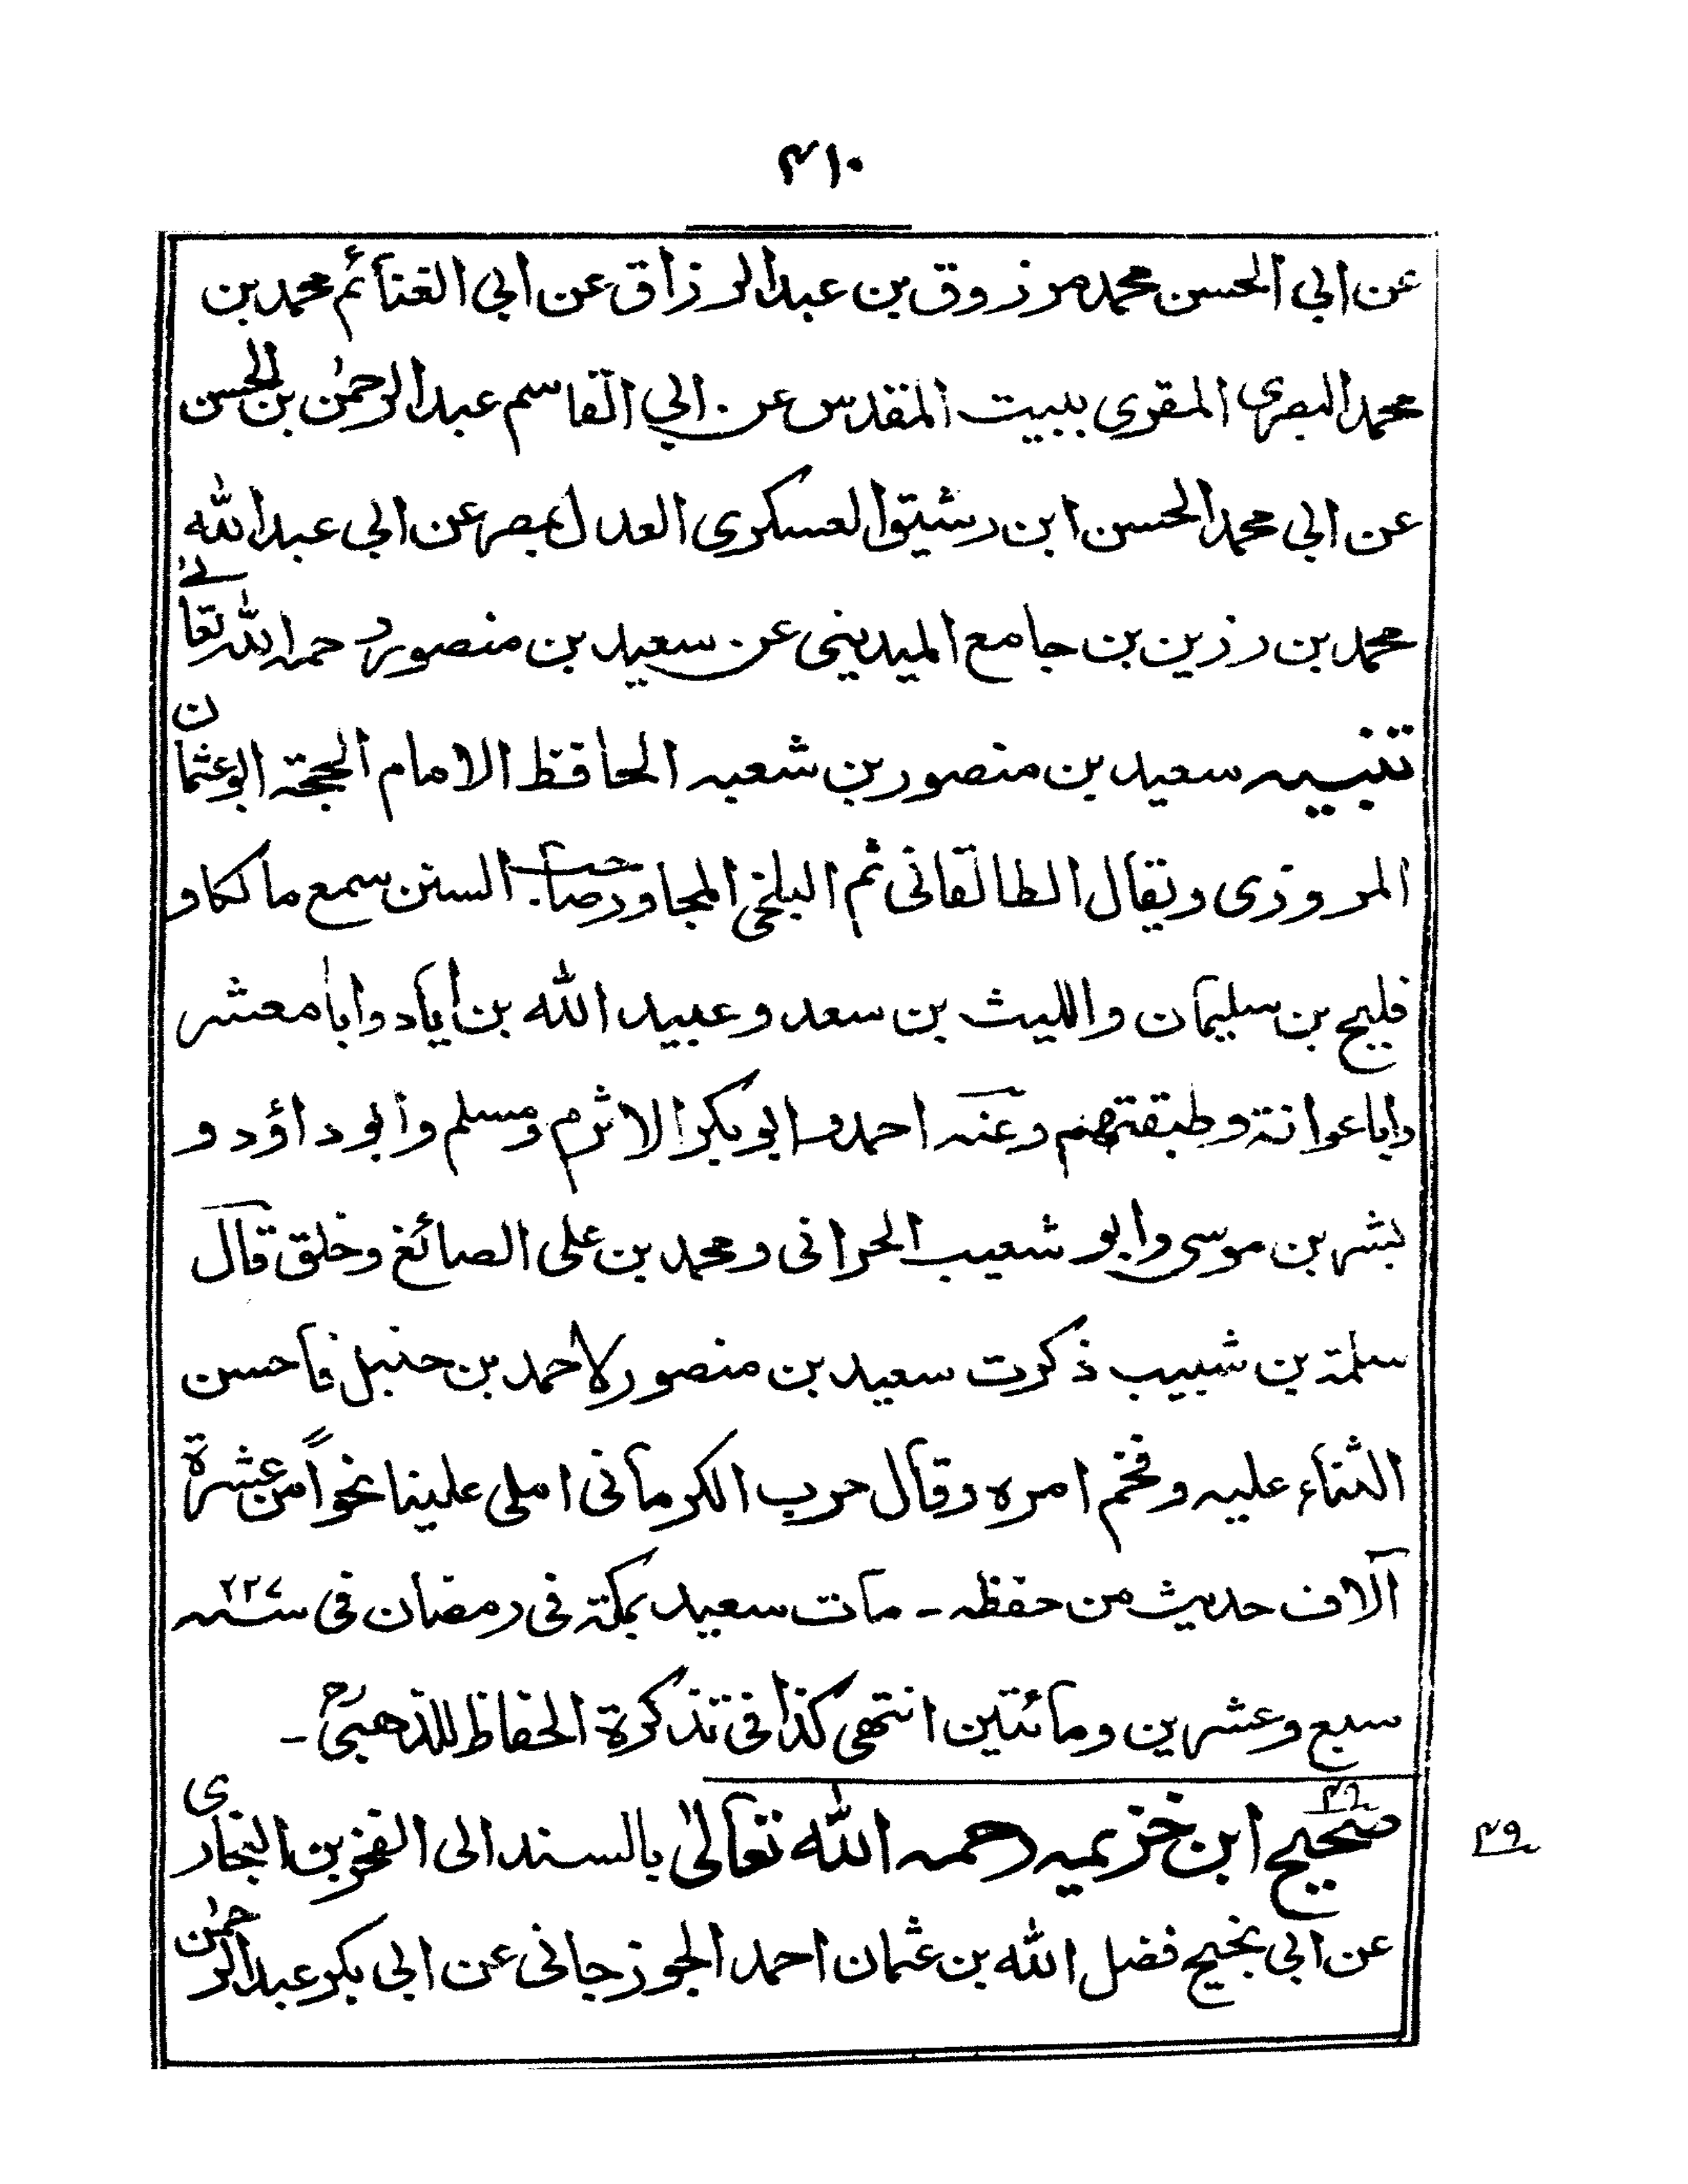 ٤١٠
عن ابي الحسن محمد مرزوق بن عبد الرزاق عن ابي الغنائم محمد بن
محمد البصرى المقرى ببيت المقدس عن ابي القاسم عبد الرحمٰن بن الحسن
عن ابي محمد الحسن ابن رشيق العسكرى العدل بمصر عن ابي عبد الله
محمد بن رزين بن جامع المديني عن سعيد بن منصور رحمه الله تعالے
تنبيه سعيد بن منصور بن شعبه الحافظ الامام الحجة ابو عثمان
المروزى ويقال الطالقانى ثم البلخى المجاور صاحب السنن سمع مالكا و
فليح بن سليمان والليث بن سعد وعبيد الله بن اياد وابا معشر
وابا عوانة وطبقتهم وعنه احمد وابو بكر الاثرم ومسلم وابو داؤد و
بشر بن موسى وابو شعيب الحرانى ومحمد بن على الصائغ وخلق قال
سلمة بن شبيب ذكرت سعيد بن منصور لاحمد بن حنبل فاحسن
الثناء عليه وفخم امره وقال حرب الكرمانى املى علينا نحواً من عشرة
آلاف حديث من حفظه ـ مات سعيد بمكة فى رمضان فى سنه ٢٢٧
سبع وعشرين ومائتين انتهى كذا فى تذكرة الحفاظ للذهبىؒ ـ
صحيح ابن خزيمه رحمه الله تعالىٰ بالسند الى الفخر بن البخارى
٤٩
عن ابي نجيح فضل الله بن عثمان احمد الجوزجانى عن ابي بكر عبد الرحمٰن